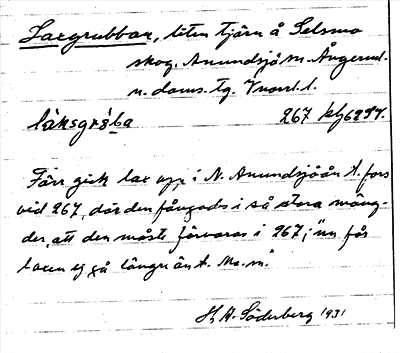 Laxgrubban, liten tjärn å Selsmo
skog. Anundsjö sn. Ångerml.
n. doms. tg. Vnorrl. l.
267 klg
Förr gick lax upp i N. Anundsjöån t. fors
vid 267, där den fångads i så stora mäng-
der, att den måst förvaras i 267; "nu får
laxen ej gå längre än t. Mo. m"
H. A. Söderberg 1931